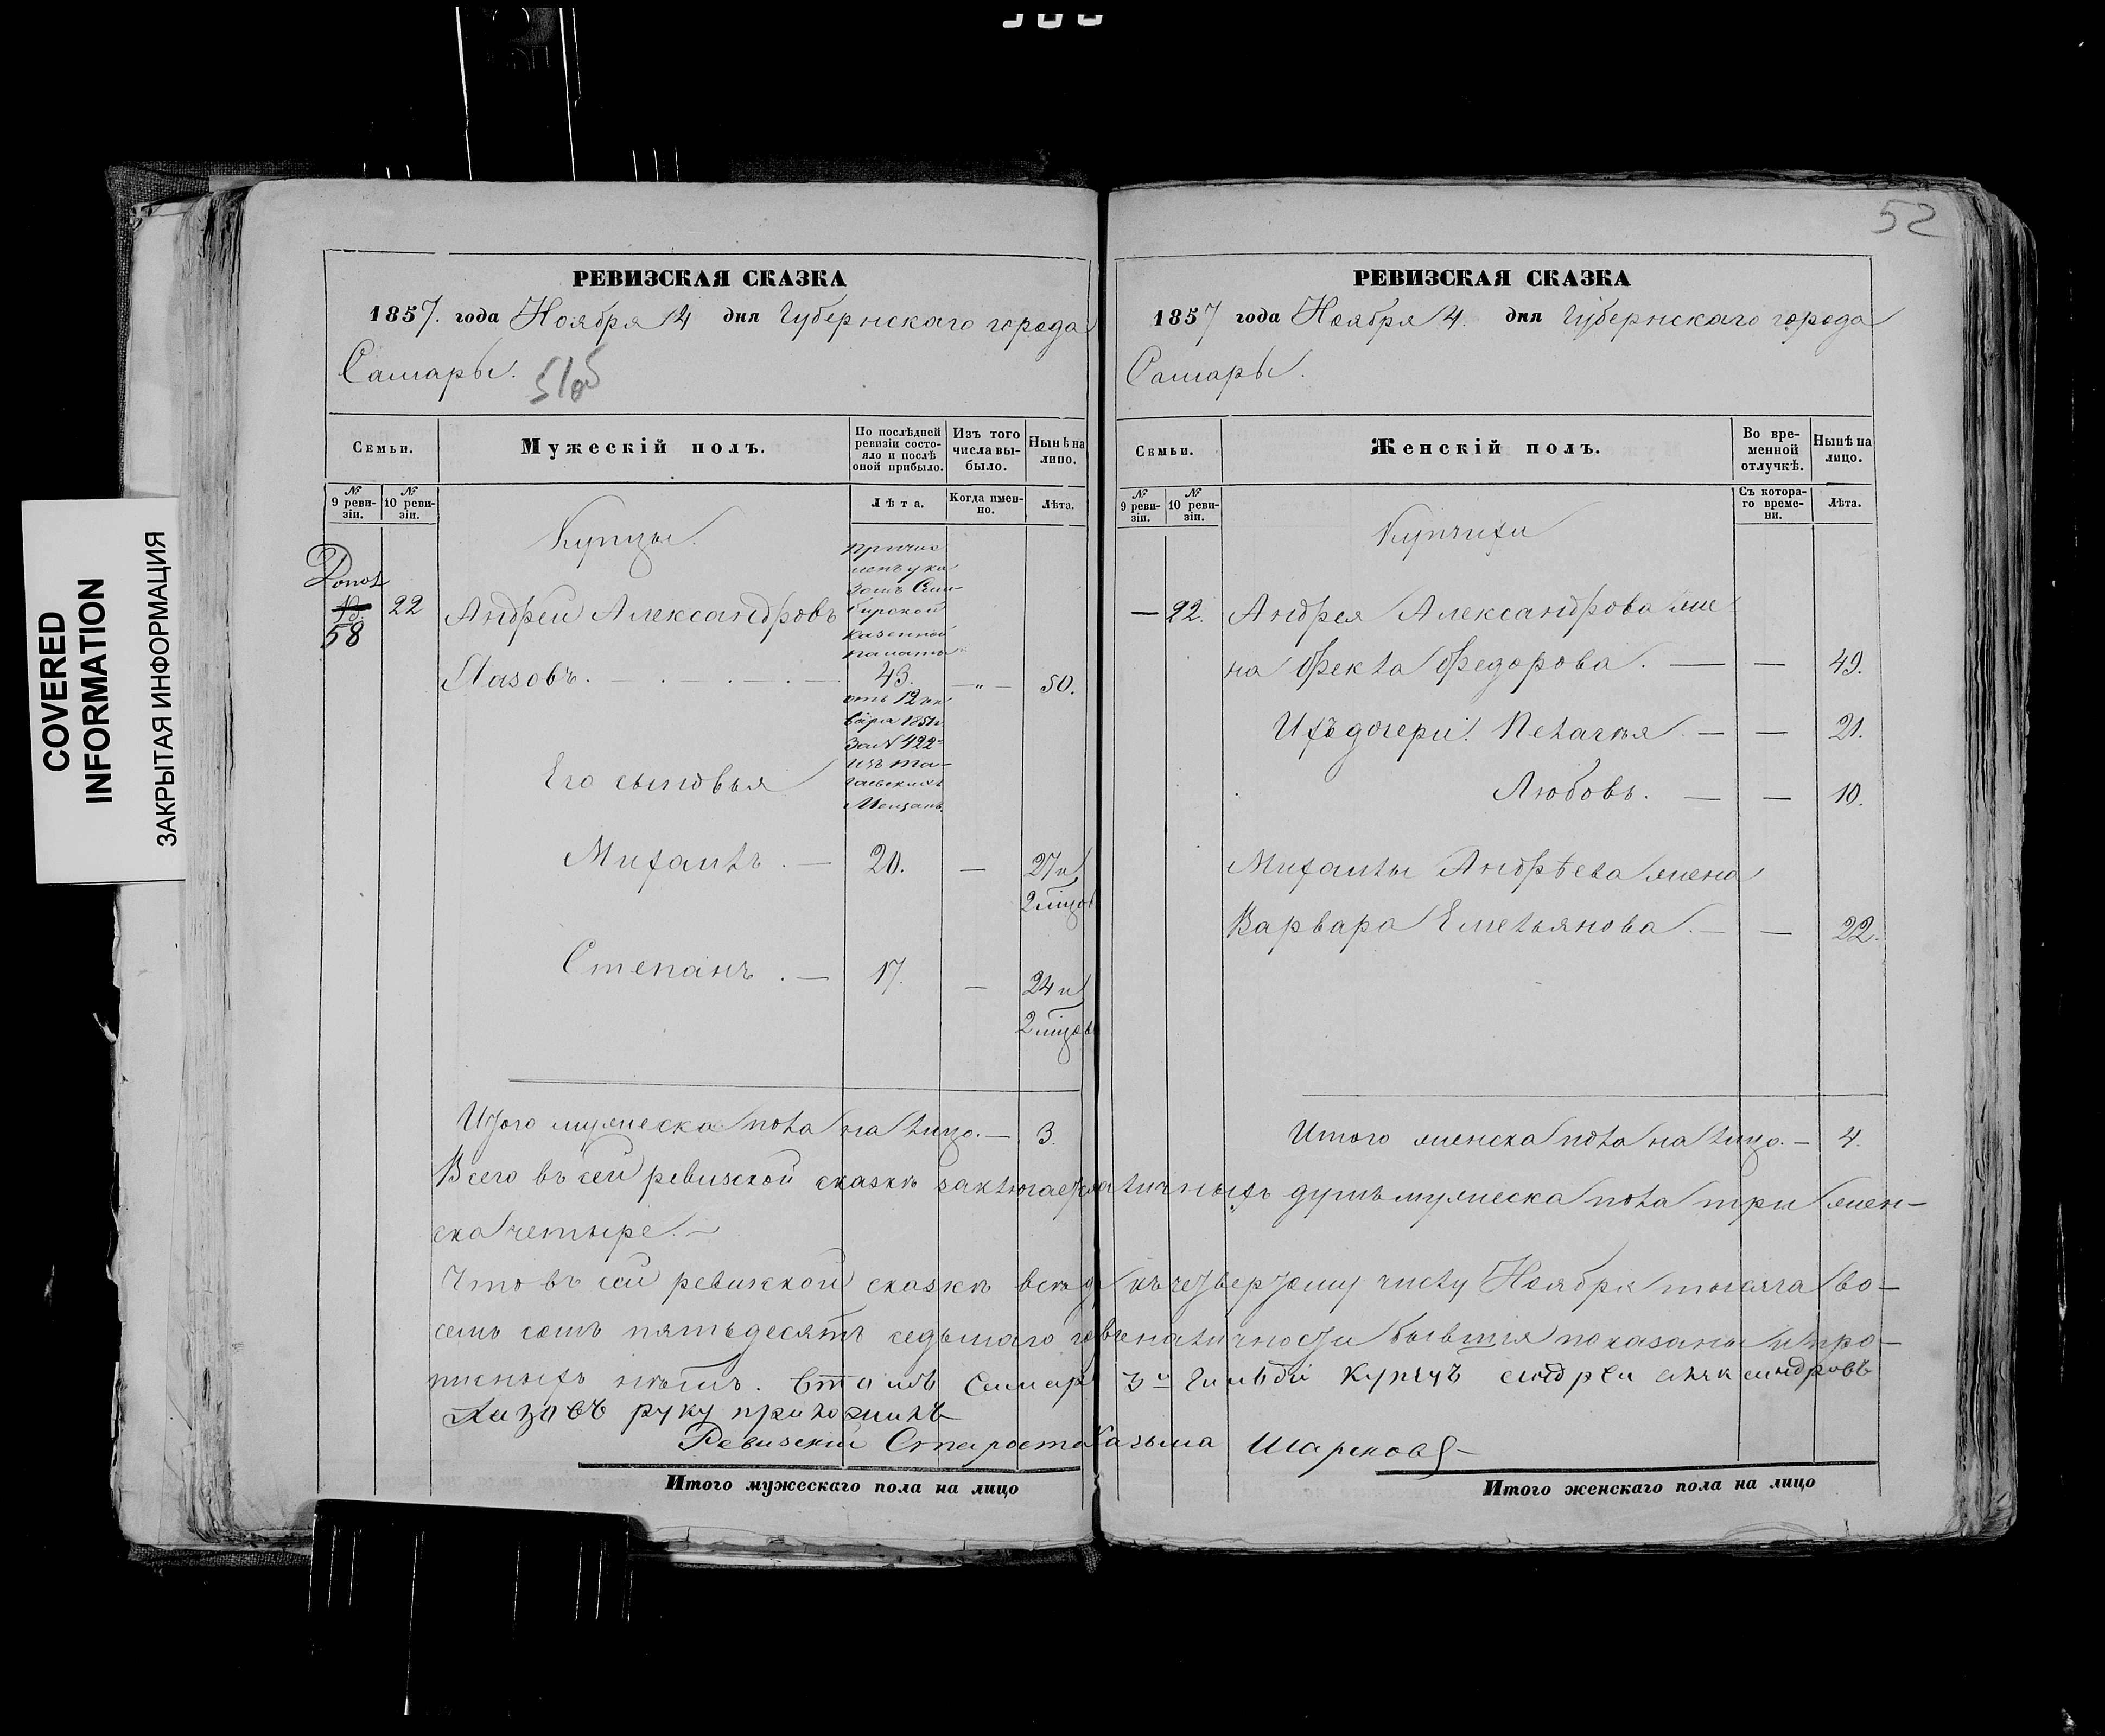 COVERED
INFORMATION
ЗАКРЫТАЯ ИНФОРМАЦИЯ
РЕВИЗСКАЯ СКАЗКА
1857. года Ноября 4 дня Губернскаго города
Самары.
51об
Семьи.
Мужескій полъ.
По послѣдней ревизіи состояло и послѣ оной прибыло.
Изъ того числа выбыло.
Нынѣ на лицо.
№ 9 ревизіи.
№ 10 ревизіи.
Лѣта.
Когда именно.
Лѣта.
Купцы.
Допол
58
22
Андрей Александровъ
Лазовъ.
причис
ленъ ука
зомъ Сим-
бирской
казенной
палаты
43.
отъ 12 ян
варя 1851 г.
за № 422
изъ
Мещанъ
— " —
50.
Его сыновья
Михаилъ . — 20. — 27 и
2 мцов
Степанъ . — 17. — 24 и
2 мцов
Итого мужеска пола на лицо. — 3.
52
РЕВИЗСКАЯ СКАЗКА
1857 года Ноября 4. дня Губернскаго города
Самары.
Семьи.
Женскій полъ.
Во временной отлучкѣ.
Нынѣ на лицо.
№ 9 ревизіи.
№ 10 ревизіи.
Съ котораго времени.
Лѣта.
Купчихи
— 22. Андрея Александрова же
на Фекла Федорова. — — 49.
Ихъ дочери: Пелагея — — 21.
Любовь. — — 10.
Михаилы Андрѣева жена
Варвара Емельянова. — — 22.
Итого женска пола на лицо. — 4.
Всего въ сей ревизской сказкѣ заключается наличныхъ душъ мужеска пола три жен-
ска четыре. —
Что въ сей ревизской сказкѣ всѣ къ четвертому числу Ноября тысяча во-
семь сотъ пятьдесятъ седьмаго го въ наличности бывшія показаны и про-
писныхъ нѣтъ. Въ томъ Самар 3й Гильдіи Купецъ Андреи Александровъ
Лазовъ руку приложилъ
Ревизскій Староста Казьма
Итого мужескаго пола на лицо
Итого женскаго пола на лицо